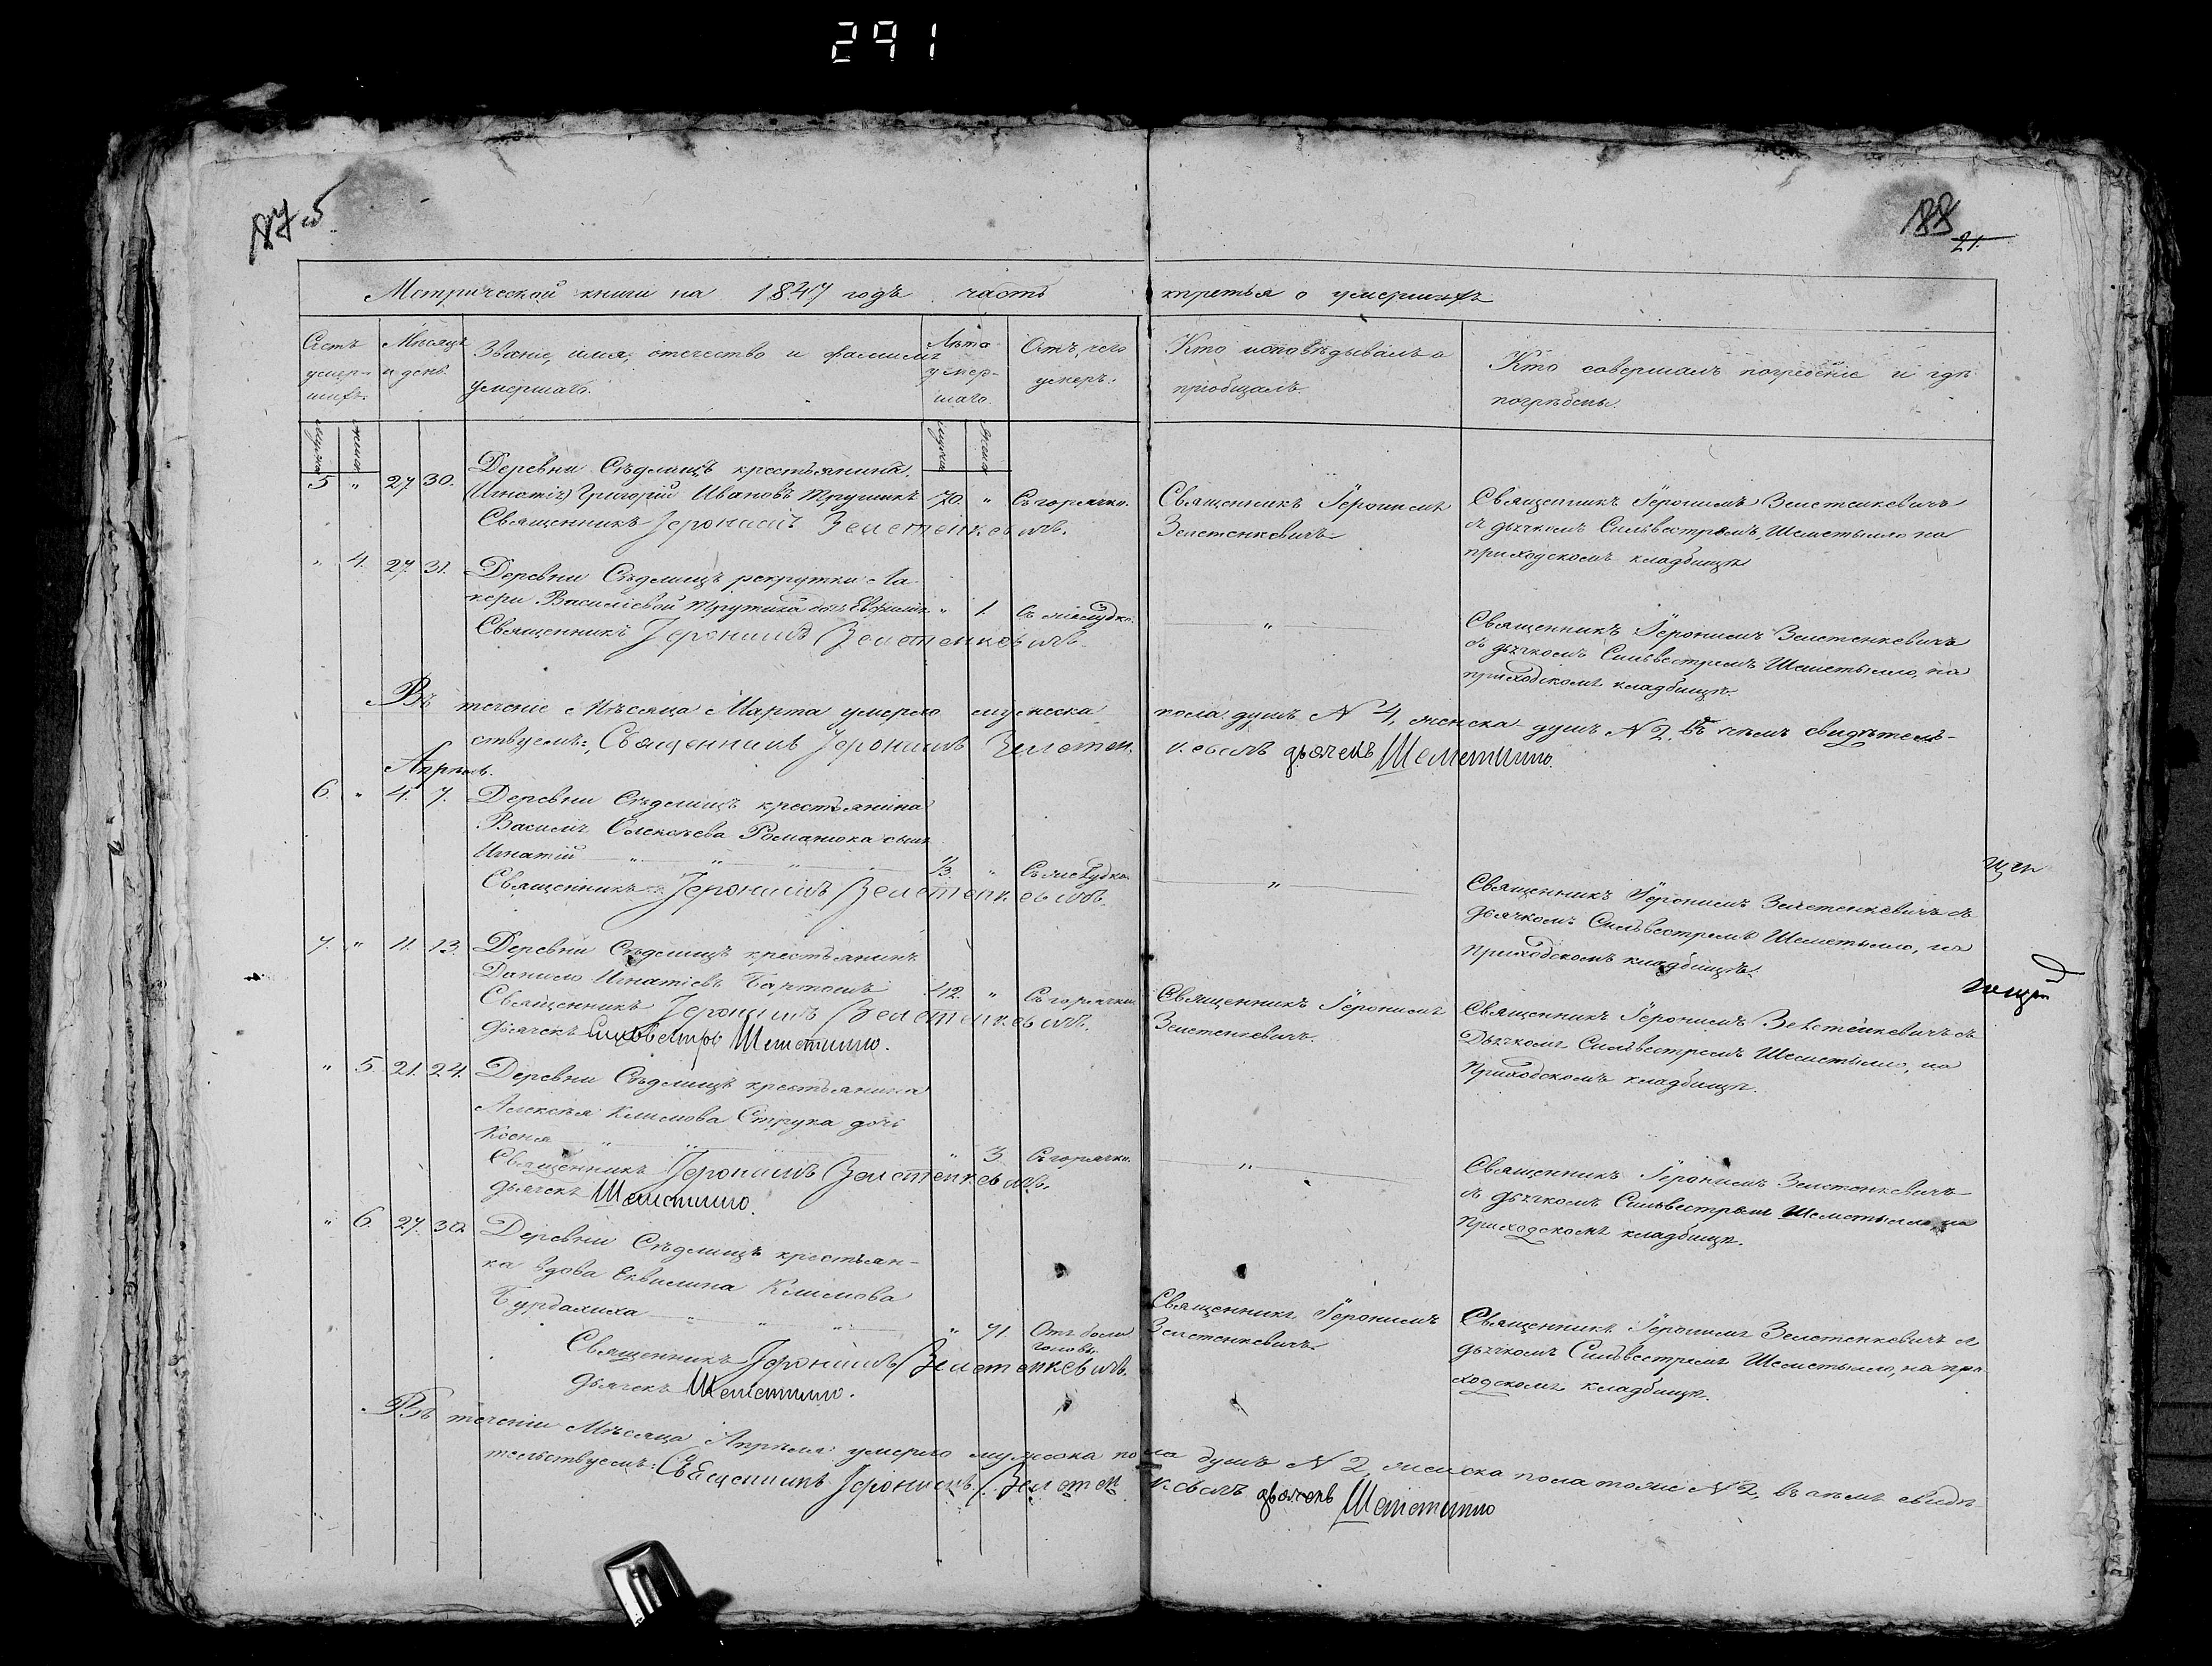 291
188
21.
Метрической книги на 1847 годъ часть третья о умершихъ
Счетъ умер-шихъ.
Мѣсяцъ и день.
Званіе, имя, отечество и фамилія умершаго.
Лѣта умер-шаго.
Отъ чего умеръ.
Кто исповѣдывалъ и пріобщалъ.
Кто совершалъ погребеніе и гдѣ погребены.
5 " 27 30.
Деревни Сѣдлищъ крестьянинъ
(Игнатій) Григорій Ивановъ
70. " Съ горячки.
Священникъ Іеронимъ Зелетенкевичъ.
Священникъ Іеронимъ
Зелетенкевичъ
Священникъ Іеронимъ Зелетенкевичъ
съ дьячкомъ Сильвестромъ Шеметылло на
приходскомъ кладбищѣ
" 4. 27. 31.
Деревни Сѣдлищъ рекрутки Ма-
Василіевой дочь
" 1.
Священникъ Іеронимъ Зелетенкевичъ
"
Священникъ Іеронимъ Зелетенкевичъ
съ дьячкомъ Сильвестромъ Шеметылло, на
приходскомъ кладбищѣ.
Въ теченіе Мѣсяца Марта умерло мужеска пола душъ N 4, женска душъ N 2. въ чемъ свидѣтель-
ствуемъ: Священникъ Іеронимъ Зелетенкевичъ дьячекъ Шеметилло.
Апрѣль.
6. " 4. 7.
Деревни Сѣдлищъ крестьянина
Василія Олексѣева Романюка сынъ
Игнатій " " "
1/3. "
Священникъ Іеронимъ Зелетенкевичъ.
"
Священникъ Іеронимъ Зелетенкевичъ съ
дьячкомъ Сильвестромъ Шеметылло, на
приходскомъ кладбищѣ.
7. " 11. 13.
Деревни Сѣдлищъ крестьянинъ
Данило Игнатіевъ
42. " Съ горячки
Священникъ Іеронимъ Зелетенкевичъ.
дьячекъ Сильвестръ Шеметилло.
Священникъ Іеронимъ
Зелетенкевичъ.
Священникъ Іеронимъ Зелетенкевичъ съ
Дьячкомъ Сильвестромъ Шеметылло, на
Приходскомъ кладбищѣ.
" 5. 21. 24.
Деревни Сѣдлищъ крестьянина
Алексѣя Климова Струка дочь
Ксенія " "
" 3. Съ горячки.
Священникъ Іеронимъ Зелетенкевичъ.
дьячекъ Шеметилло.
"
Священникъ Іеронимъ Зелетенкевичъ
съ дьячкомъ Сильвестромъ Шеметылло, на
приходскомъ кладбищѣ.
" 6. 27. 30.
Деревни Сѣдлищъ крестьян-
ка вдова Еквилина Климова
Бурдалиха " " "
" 71. Отъ боли головы
Священникъ Іеронимъ Зелетенкевичъ.
дьячекъ Шеметилло.
Священникъ Іеронимъ
Зелетенкевичъ
Священникъ Іеронимъ Зелетенкевичъ съ
дьячкомъ Сильвестромъ Шеметылло, на при-
ходскомъ кладбищѣ.
Въ теченіи Мѣсяца Апрѣля умерло мужеска пола душъ N 2, женска пола тоже N 2, въ чемъ свидѣ-
тельствуемъ: Священникъ Іеронимъ Зелетенкевичъ дьячекъ Шеметилло